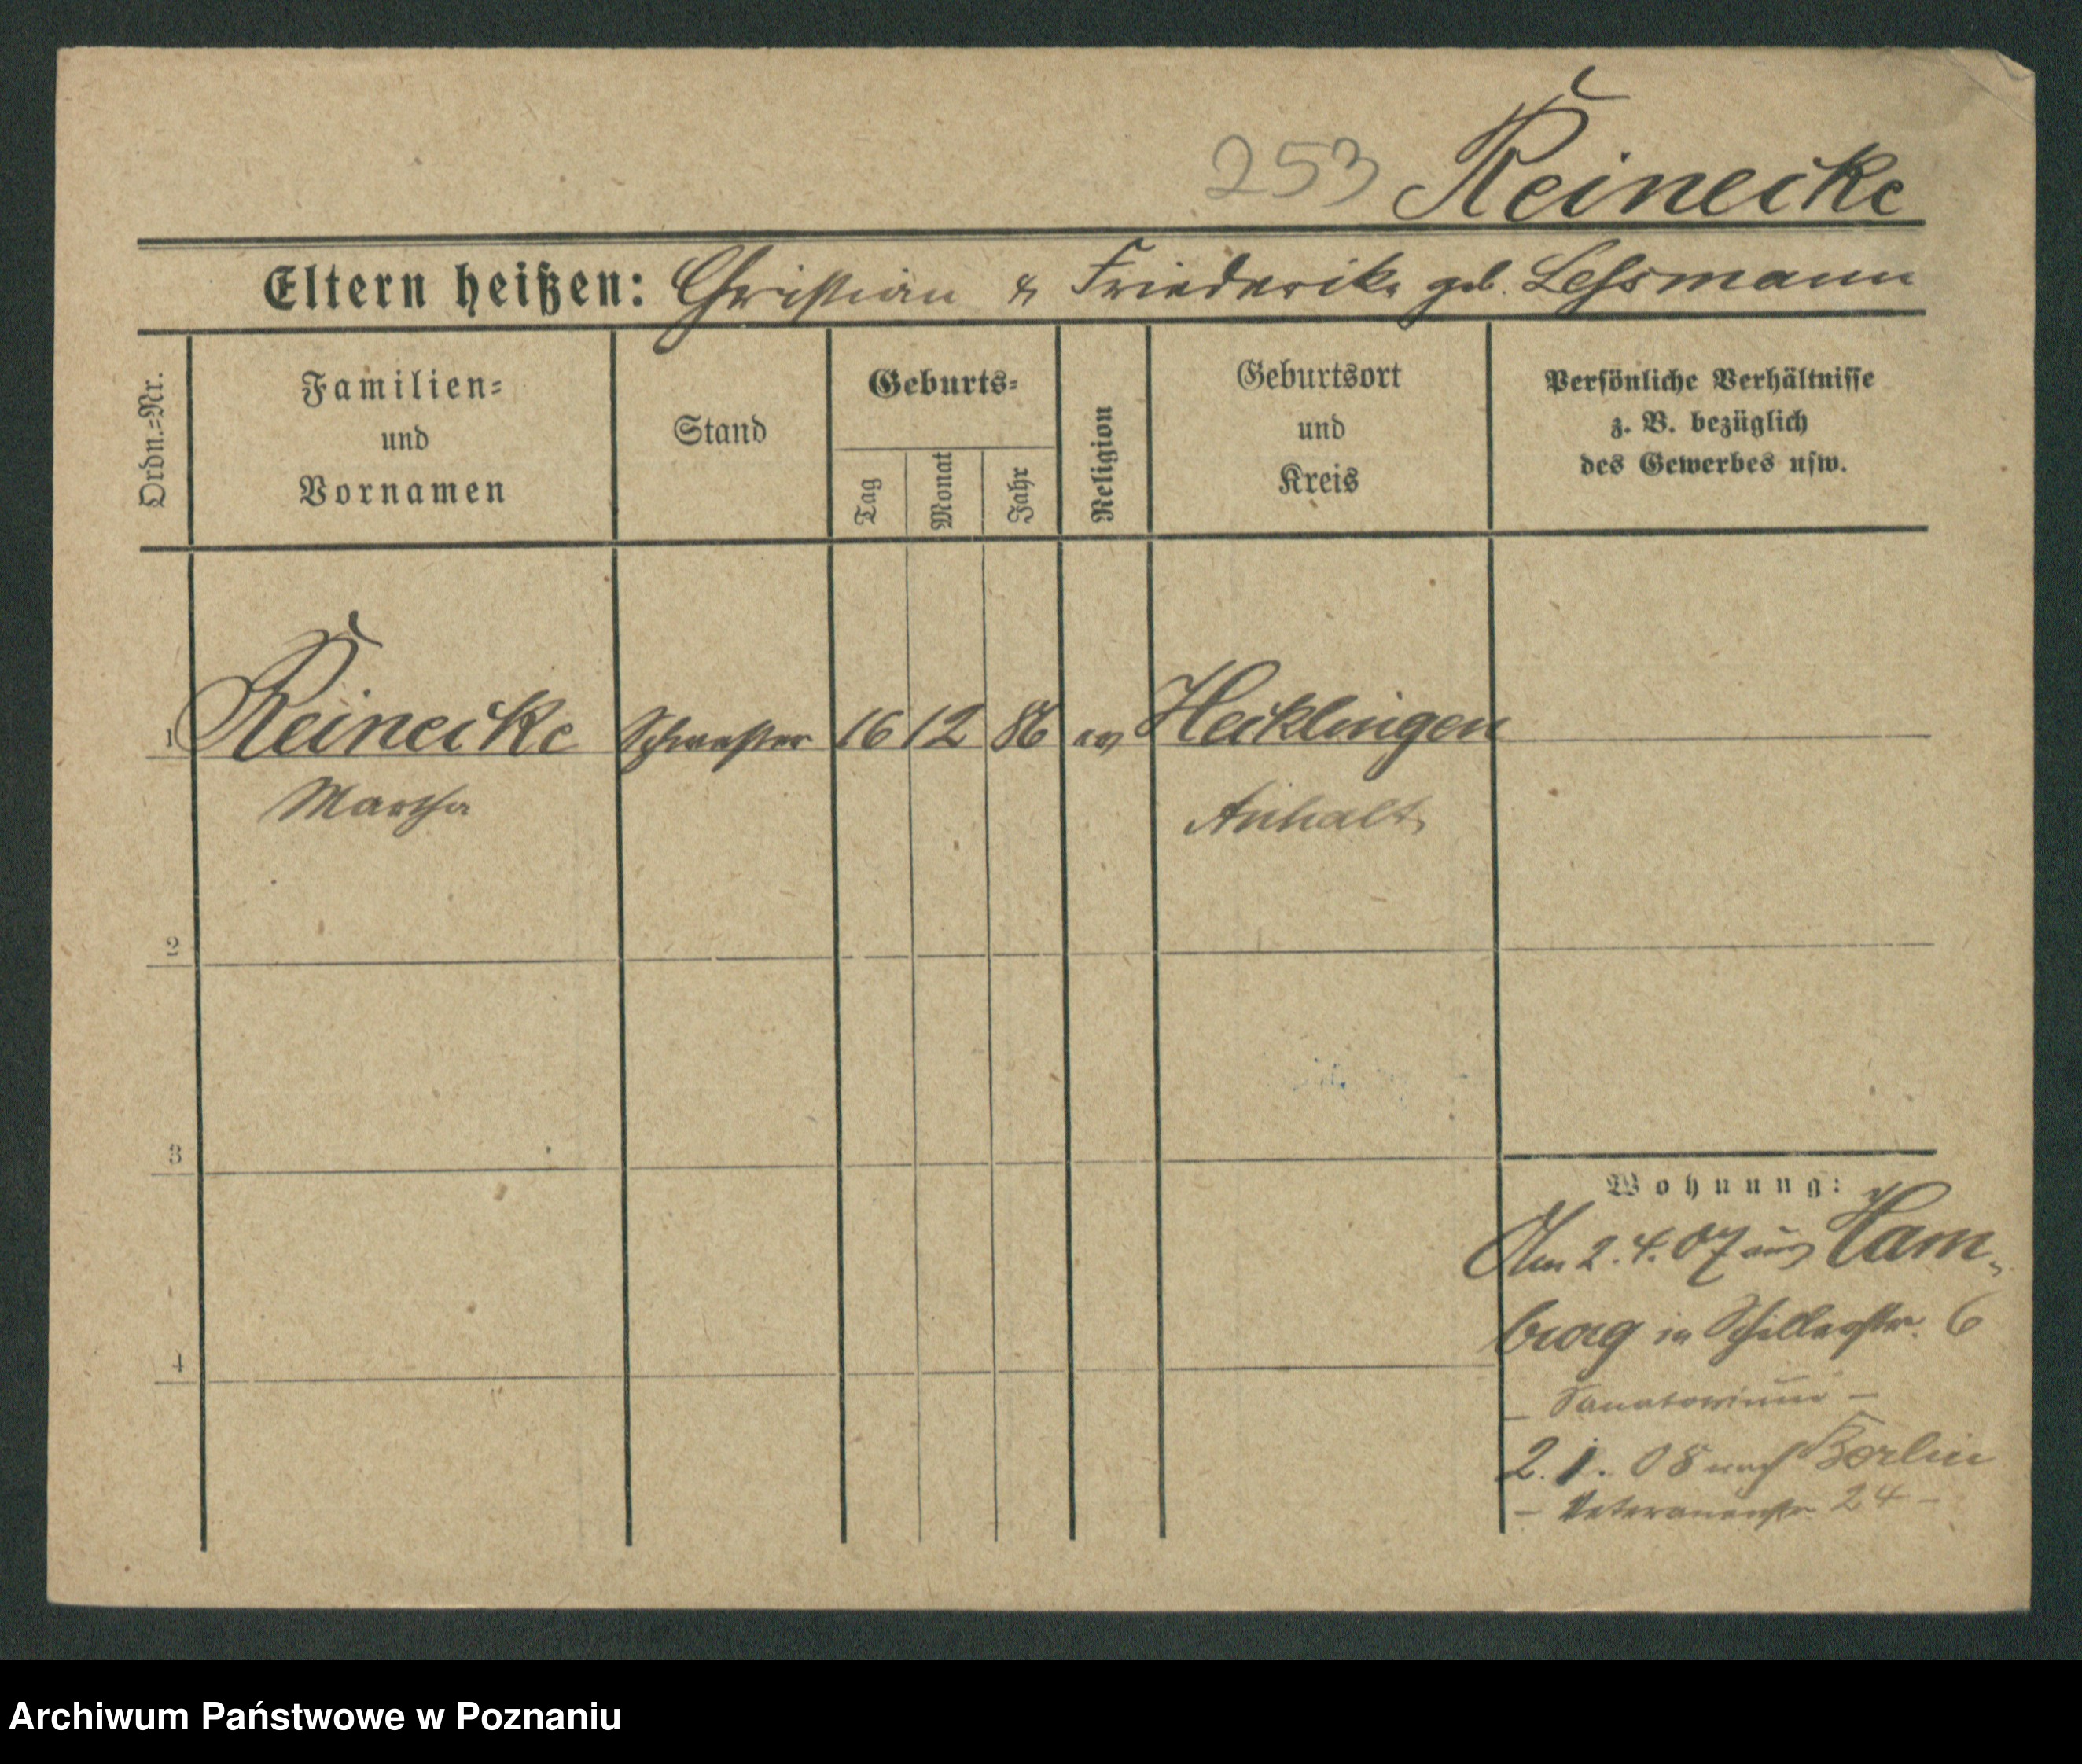 253 Reinecke
Eltern heißen: Christian & Friederike geb. Lessmann
Ordn.=Nr.
Familien=
und
Vornamen
Stand
Geburts=
Tag
Monat
Jahr
Religion
Geburtsort
und
Kreis
Persönliche Verhältnisse
z. B. bezüglich
des Gewerbes usw.
1 Reinecke Schwester 16 12 86 ev Hecklingen
Martha Anhalt
2
3
Wohnung:
Am 2. 4. 07 aus Ham-
burg in Schillerstr. 6
4
– Sanatorium –
2. 1. 08 nach Berlin
– Veteranenstr 24 –
Archiwum Państwowe w Poznaniu